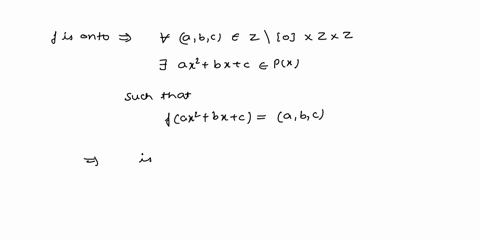 f is onto ⇒ ∀ (a,b,c) ∈ Z \ {0} × Z × Z
∃ ax²+bx+c ∈ P(x)
such that
f(ax²+bx+c) = (a,b,c)
⇒ is